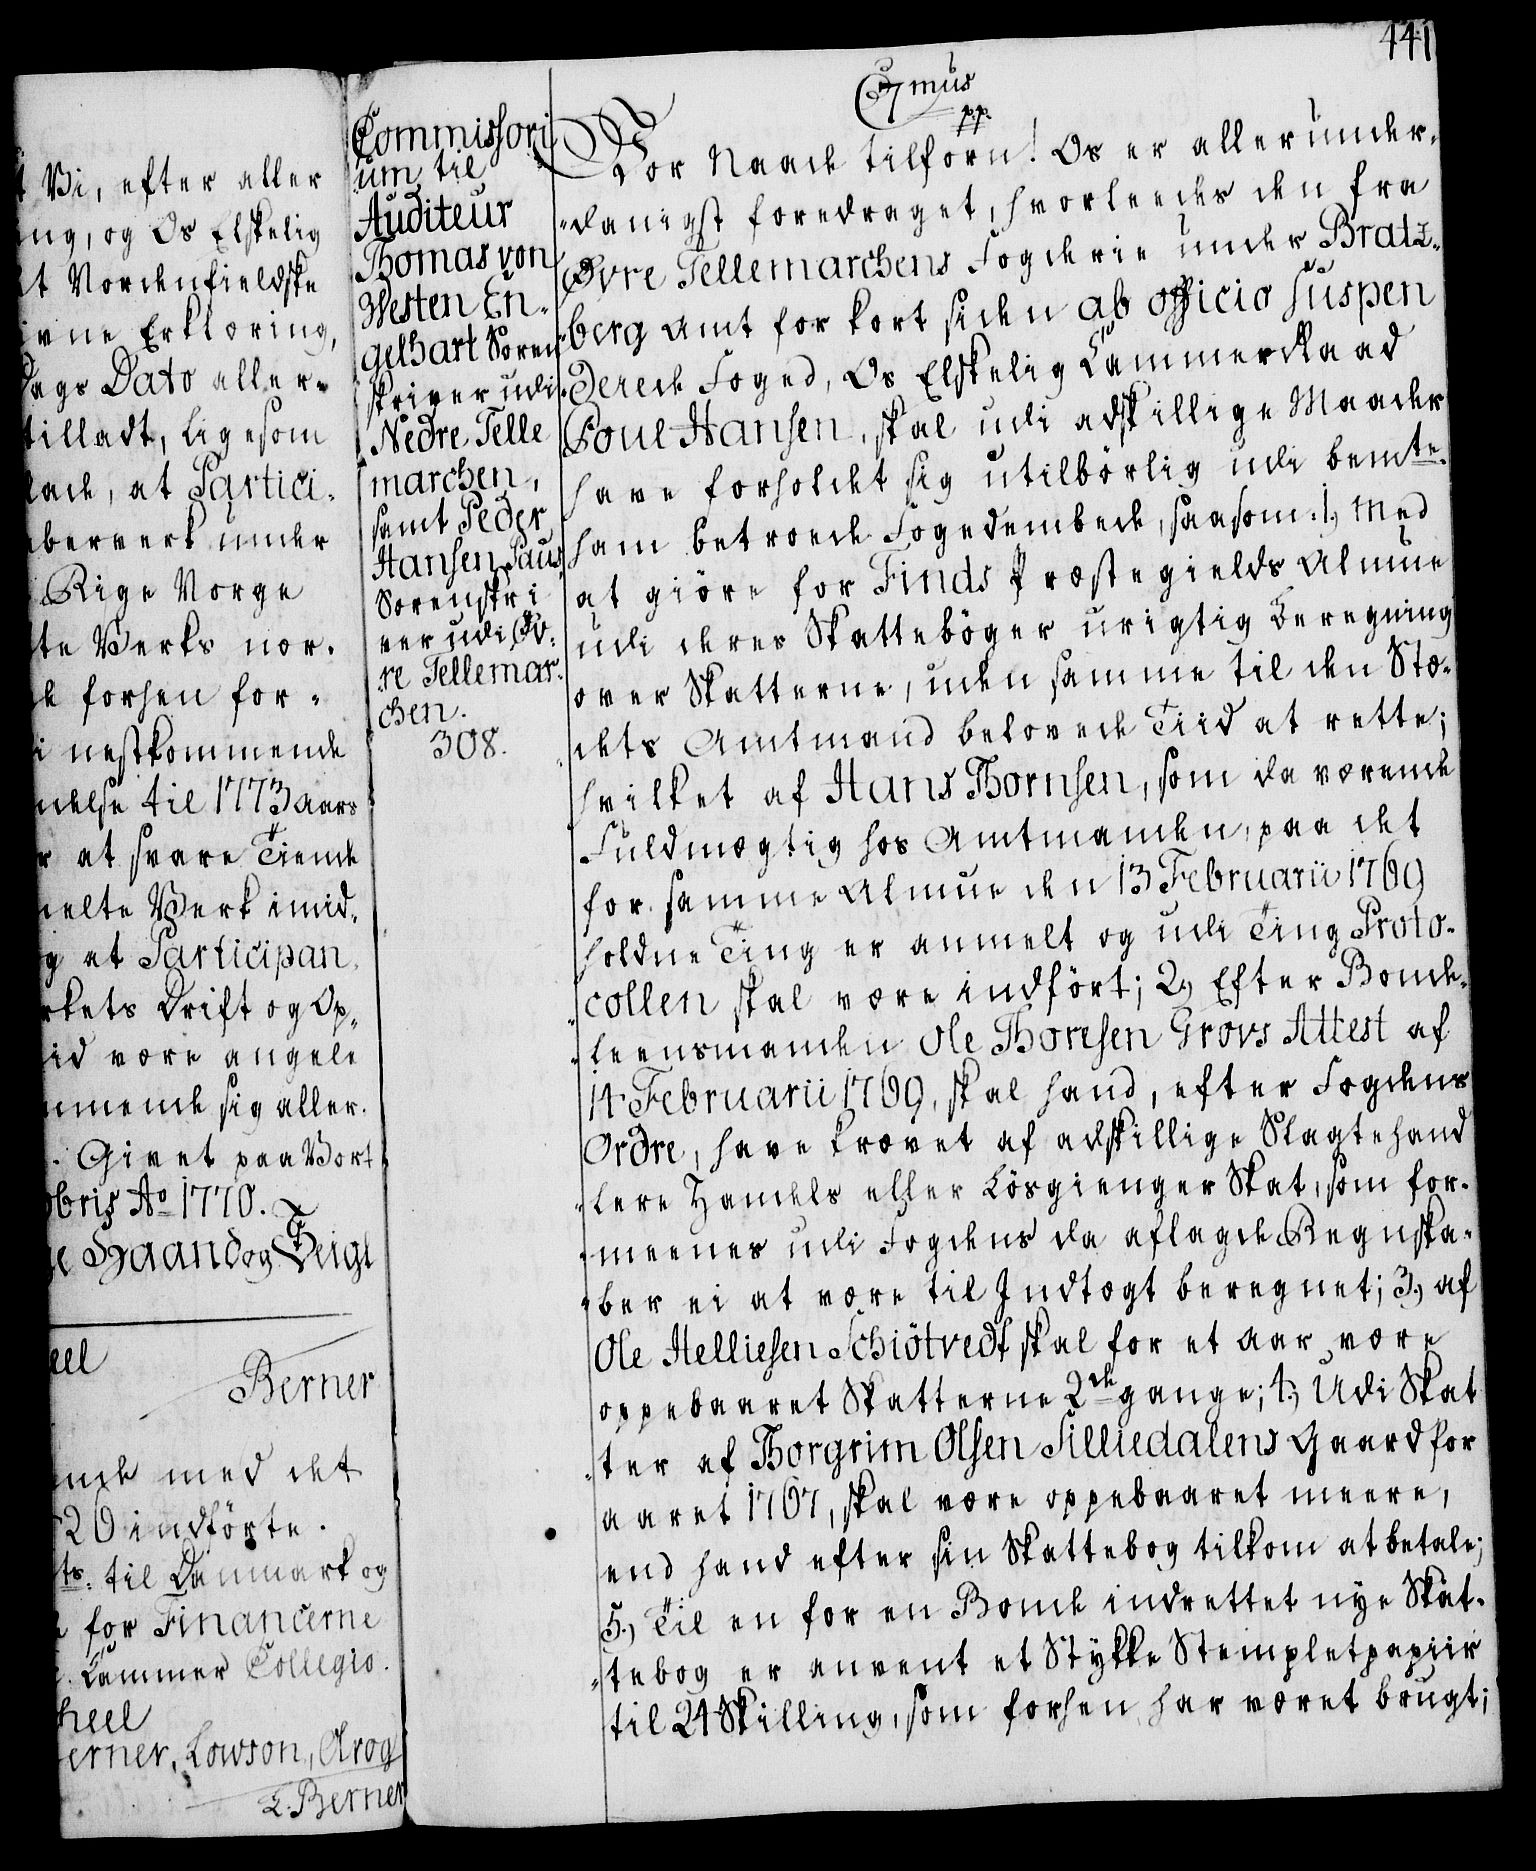 441
t Vi, efter aller
ng, og Os Elskelig
t Nordenfieldske
ivne Erklæring,
Dags Dato aller-
tilladt, ligesom
lade, at Partici-
bverk under
Rige Norge
te Verks nær-
de forhen for-
i nestkommende
ndelse til 1773 Aars
r at svare Tiende
melte Verk imid-
g at Participan-
rkets Drift og Op-
id være angele
mmende sig aller-
. Givet paa Vort
bris Ao 1770.
Haand og Seigl
eel
Berner
nde med det
26 indførte.
ts: til Danmark og
for Financerne
Cammer Collegio.
heel
erner, Lowson, Arog
L: Berner
Commissori
um til
Auditeur
Thomas von
Westen En-
gelhart Soren-
skriver udi
Nedre Telle
marchen,
samt Peder
Hansen Paus
Sorenskri
ver udi Øv-
re Tellemar-
chen.
308.
C 7mus
pp.
Vor Naade tilforn! Os er allerunder-
danigst foredraget, hvorleedes den fra
Øvre Tellemarchens Fogderie under Bratz-
berg Amt for kort siden ab officio suspen
derede Foged, Os Elskelig Cammerraad
Poul Hansen, skal udi adskillige Maader
have forholdet sig utilbørlig udi bemte
ham betroede Fogedembede, saasom: 1, Med
at giøre for Finds Præstegields Almue
udi deres Skattebøger urigtig Beregning
over Skatterne, uden samme til den Stæ-
dets Amtmand belovede Tiid at rette;
hvilket af Hans Thornsen, som da værende
Fuldmægtig hos Amtmanden, paa det
for samme Almue den 13 Februarii 1769
holdne Ting er anmelt og udi Ting Proto-
collen skal være indført; 2, Efter Bonde-
leensmanden Ole Thoresen Grovs Attest af
14 Februarii 1769, skal hand, efter Fogdens
Ordre, have krævet af adskillige Slagtehand
lere Handels eller Løsgienger Skat, som for-
meenes udi Fogdens da aflagde Regnska-
ber ei at være til Indtægt beregnet; 3, af
Ole Helliesen Schiøtvedt skal for et Aar være
oppebaaret Skatterne 2de gange; 4, Udi Skat
ter af Thorgrim Olsen Silliedalens Gaard for
Aaret 1767, skal være oppebaaret meere,
end hand efter sin Skattebog tilkom at betale;
5, Til en for en Bonde indrettet nye Skat-
tebog er anvent et Stykke Stempletpapiir
til 24 Skilling, som forhen har været brugt;